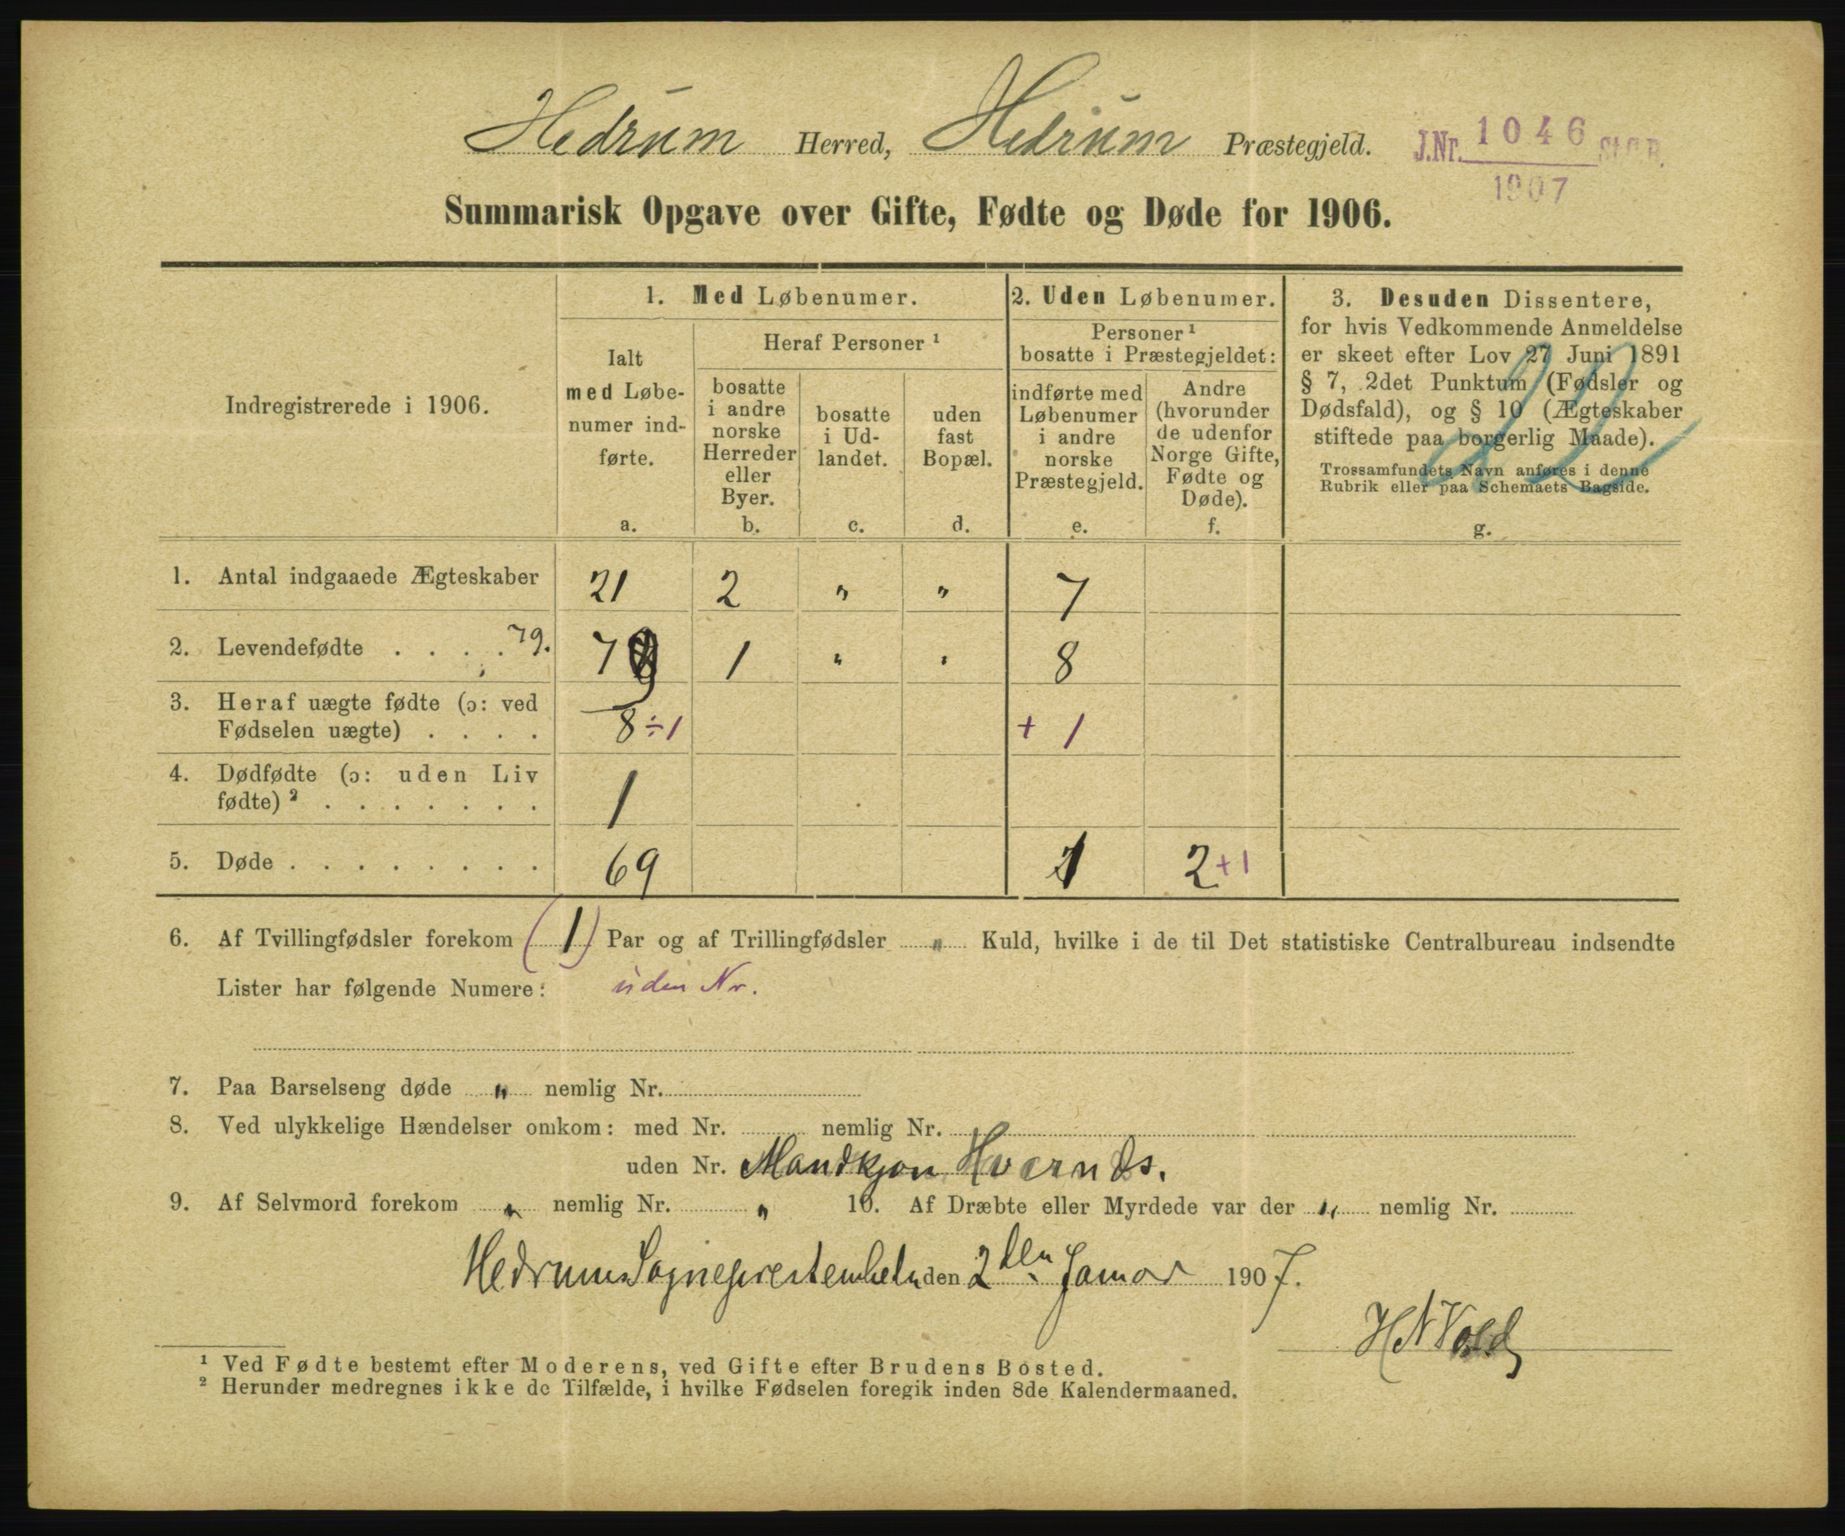 Hedrum Herred, Hedrum Præstegjeld. J.Nr. 1046 St.C.B.
1907
Summarisk Opgave over Gifte, Fødte og Døde for 1906.
Indregistrerede i 1906.
1. Med Løbenumer.
Ialt
med Løbe-
numer ind-
førte.
a.
Heraf Personer ¹
bosatte
i andre
norske
Herreder
eller
Byer.
b.
bosatte
i Ud-
landet.
c.
uden
fast
Bopæl.
d.
2. Uden Løbenumer.
Personer ¹
bosatte i Præstegjeldet:
indførte med
Løbenumer
i andre
norske
Præstegjeld.
e.
Andre
(hvorunder
de udenfor
Norge Gifte,
Fødte og
Døde).
f.
3. Desuden Dissentere,
for hvis Vedkommende Anmeldelse
er skeet efter Lov 27 Juni 1891
§ 7, 2det Punktum (Fødsler og
Dødsfald), og § 10 (Ægteskaber
stiftede paa borgerlig Maade).
Trossamfundets Navn anføres i denne
Rubrik eller paa Schemaets Bagside.
g.
22
1. Antal indgaaede Ægteskaber 21 2 " " 7
2. Levendefødte . . . . 79. 79 1 " " 8
3. Heraf uægte fødte (ɔ: ved
Fødselen uægte) . . . . 8 ÷1 + 1
4. Dødfødte (ɔ: uden Liv
fødte) ² . . . . . . . 1
5. Døde . . . . . . . . 69 1 2 +1
6. Af Tvillingfødsler forekom (1) Par og af Trillingfødsler " Kuld, hvilke i de til Det statistiske Centralbureau indsendte
Lister har følgende Numere: uden Nr.
7. Paa Barselseng døde " nemlig Nr.
8. Ved ulykkelige Hændelser omkom: med Nr. nemlig Nr.
uden Nr. Mandkjøn
9. Af Selvmord forekom " nemlig Nr. " 10. Af Dræbte eller Myrdede var der " nemlig Nr.
Hedrum den 2den Januar 1907.
H N Vold
¹ Ved Fødte bestemt efter Moderens, ved Gifte efter Brudens Bosted.
² Herunder medregnes ikke de Tilfælde, i hvilke Fødselen foregik inden 8de Kalendermaaned.